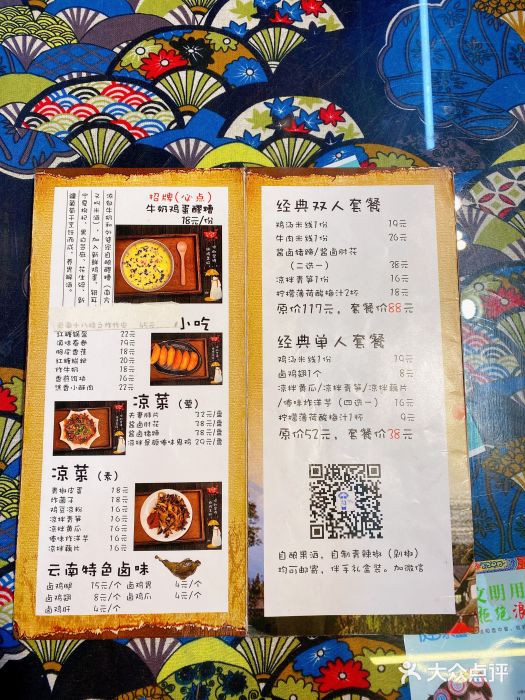 招牌(必点)
牛奶鸡蛋醪糟
18元/份
小吃
红糖锅盔 22元
滇味春卷 18元
脆皮香蕉 18元
红糖糍粑 20元
炸牛奶 18元
香煎饵块 16元
凉菜(荤)
夫妻肺片 32元/盘
酱卤肘花 38元/盘
酱卤猪蹄 38元/盘
凉菜(素)
青椒皮蛋 18元
炸菌子 18元
鸡豆凉粉 16元
凉拌青笋 16元
凉拌黄瓜 16元
傣味炸洋芋 16元
凉拌藕片 16元
云南特色卤味
卤鸡腿 15元/个 卤鸡胃 4元/个
卤鸡翅 8元/个 卤鸡爪 4元/个
卤鸡肝 4元/个
经典双人套餐
鸡汤米线1份 19元
牛肉米线1份 26元
酱卤猪蹄/酱卤肘花
(二选一) 38元
凉拌青笋1份 16元
柠檬薄荷酸梅汁2杯 18元
原价117元，套餐价88元
经典单人套餐
鸡汤米线1份 19元
卤鸡翅1个 8元
凉拌黄瓜/凉拌青笋/凉拌藕片
/傣味炸洋芋(四选一) 16元
柠檬薄荷酸梅汁1杯 9元
原价52元，套餐价38元
自酿果酒，自制青辣椒(剁椒)
均可邮寄，伴手礼盒装。加微信
文明用
拒绝浪
大众点评